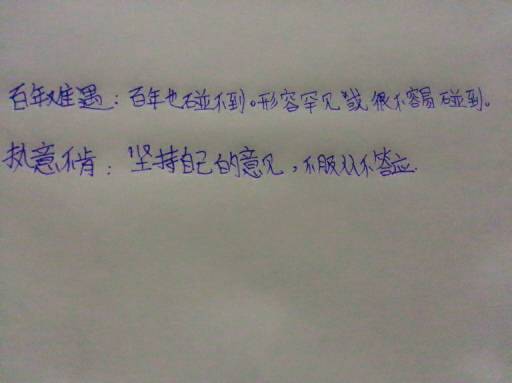 百年难遇：百年也碰不到。形容罕见或很不容易碰到。
执意不肯：坚持自己的意见，不服从不答应.